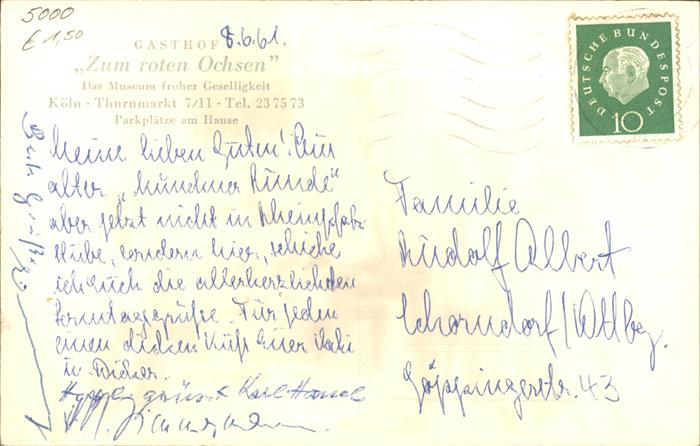 5000
€ 1,50
GASTHOF 8.6.61.
„Zum roten Ochsen”
Das Museum froher Geselligkeit
Köln - Thurnmarkt 7/11 - Tel. 23 75 73
Parkplätze am Hause
Meine lieben Guten! Aus
alter „Münchner Runde“
aber jetzt nicht in Rheinpfalz-
stube, sondern hier, schicke
ich Euch die allerherzlichsten
Sonntagsgrüße. Für jeden
einen dicken Kuß Euer
u.
grüsst Karl
DEUTSCHE BUNDESPOST
10
Familie
Rudolf Albert
Schorndorf/Wttbg.
Göppingerstr. 43